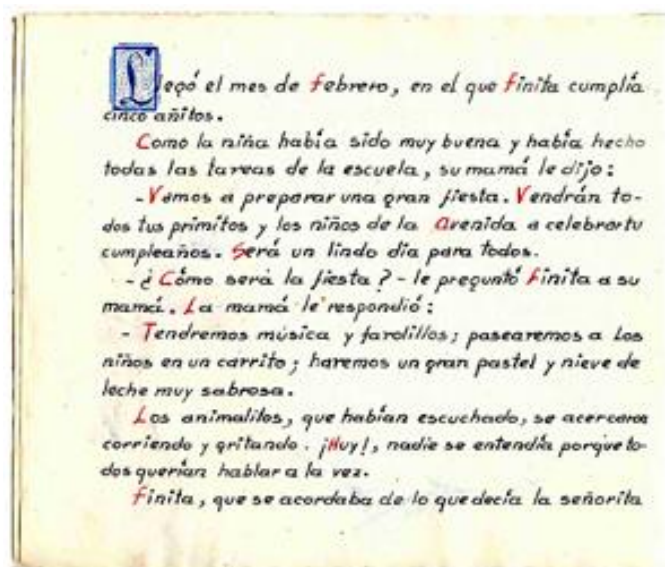 Llegó el mes de Febrero, en el que Finita cumplía
cinco añitos.
Como la niña había sido muy buena y había hecho
todas las tareas de la escuela, su mamá le dijo:
- Vamos a preparar una gran fiesta. Vendrán to-
dos tus primitos y los niños de la Avenida a celebrar tu
cumpleaños. Será un lindo día para todos.
- ¿Cómo será la fiesta? - le preguntó Finita a su
mamá. La mamá le respondió:
- Tendremos música y farolillos; pasearemos a los
niños en un carrito; haremos un gran pastel y nieve de
leche muy sabrosa.
Los animalitos, que habían escuchado, se acercaron
corriendo y gritando. ¡Huy!, nadie se entendía porque to-
dos querían hablar a la vez.
Finita, que se acordaba de lo que decía la señorita